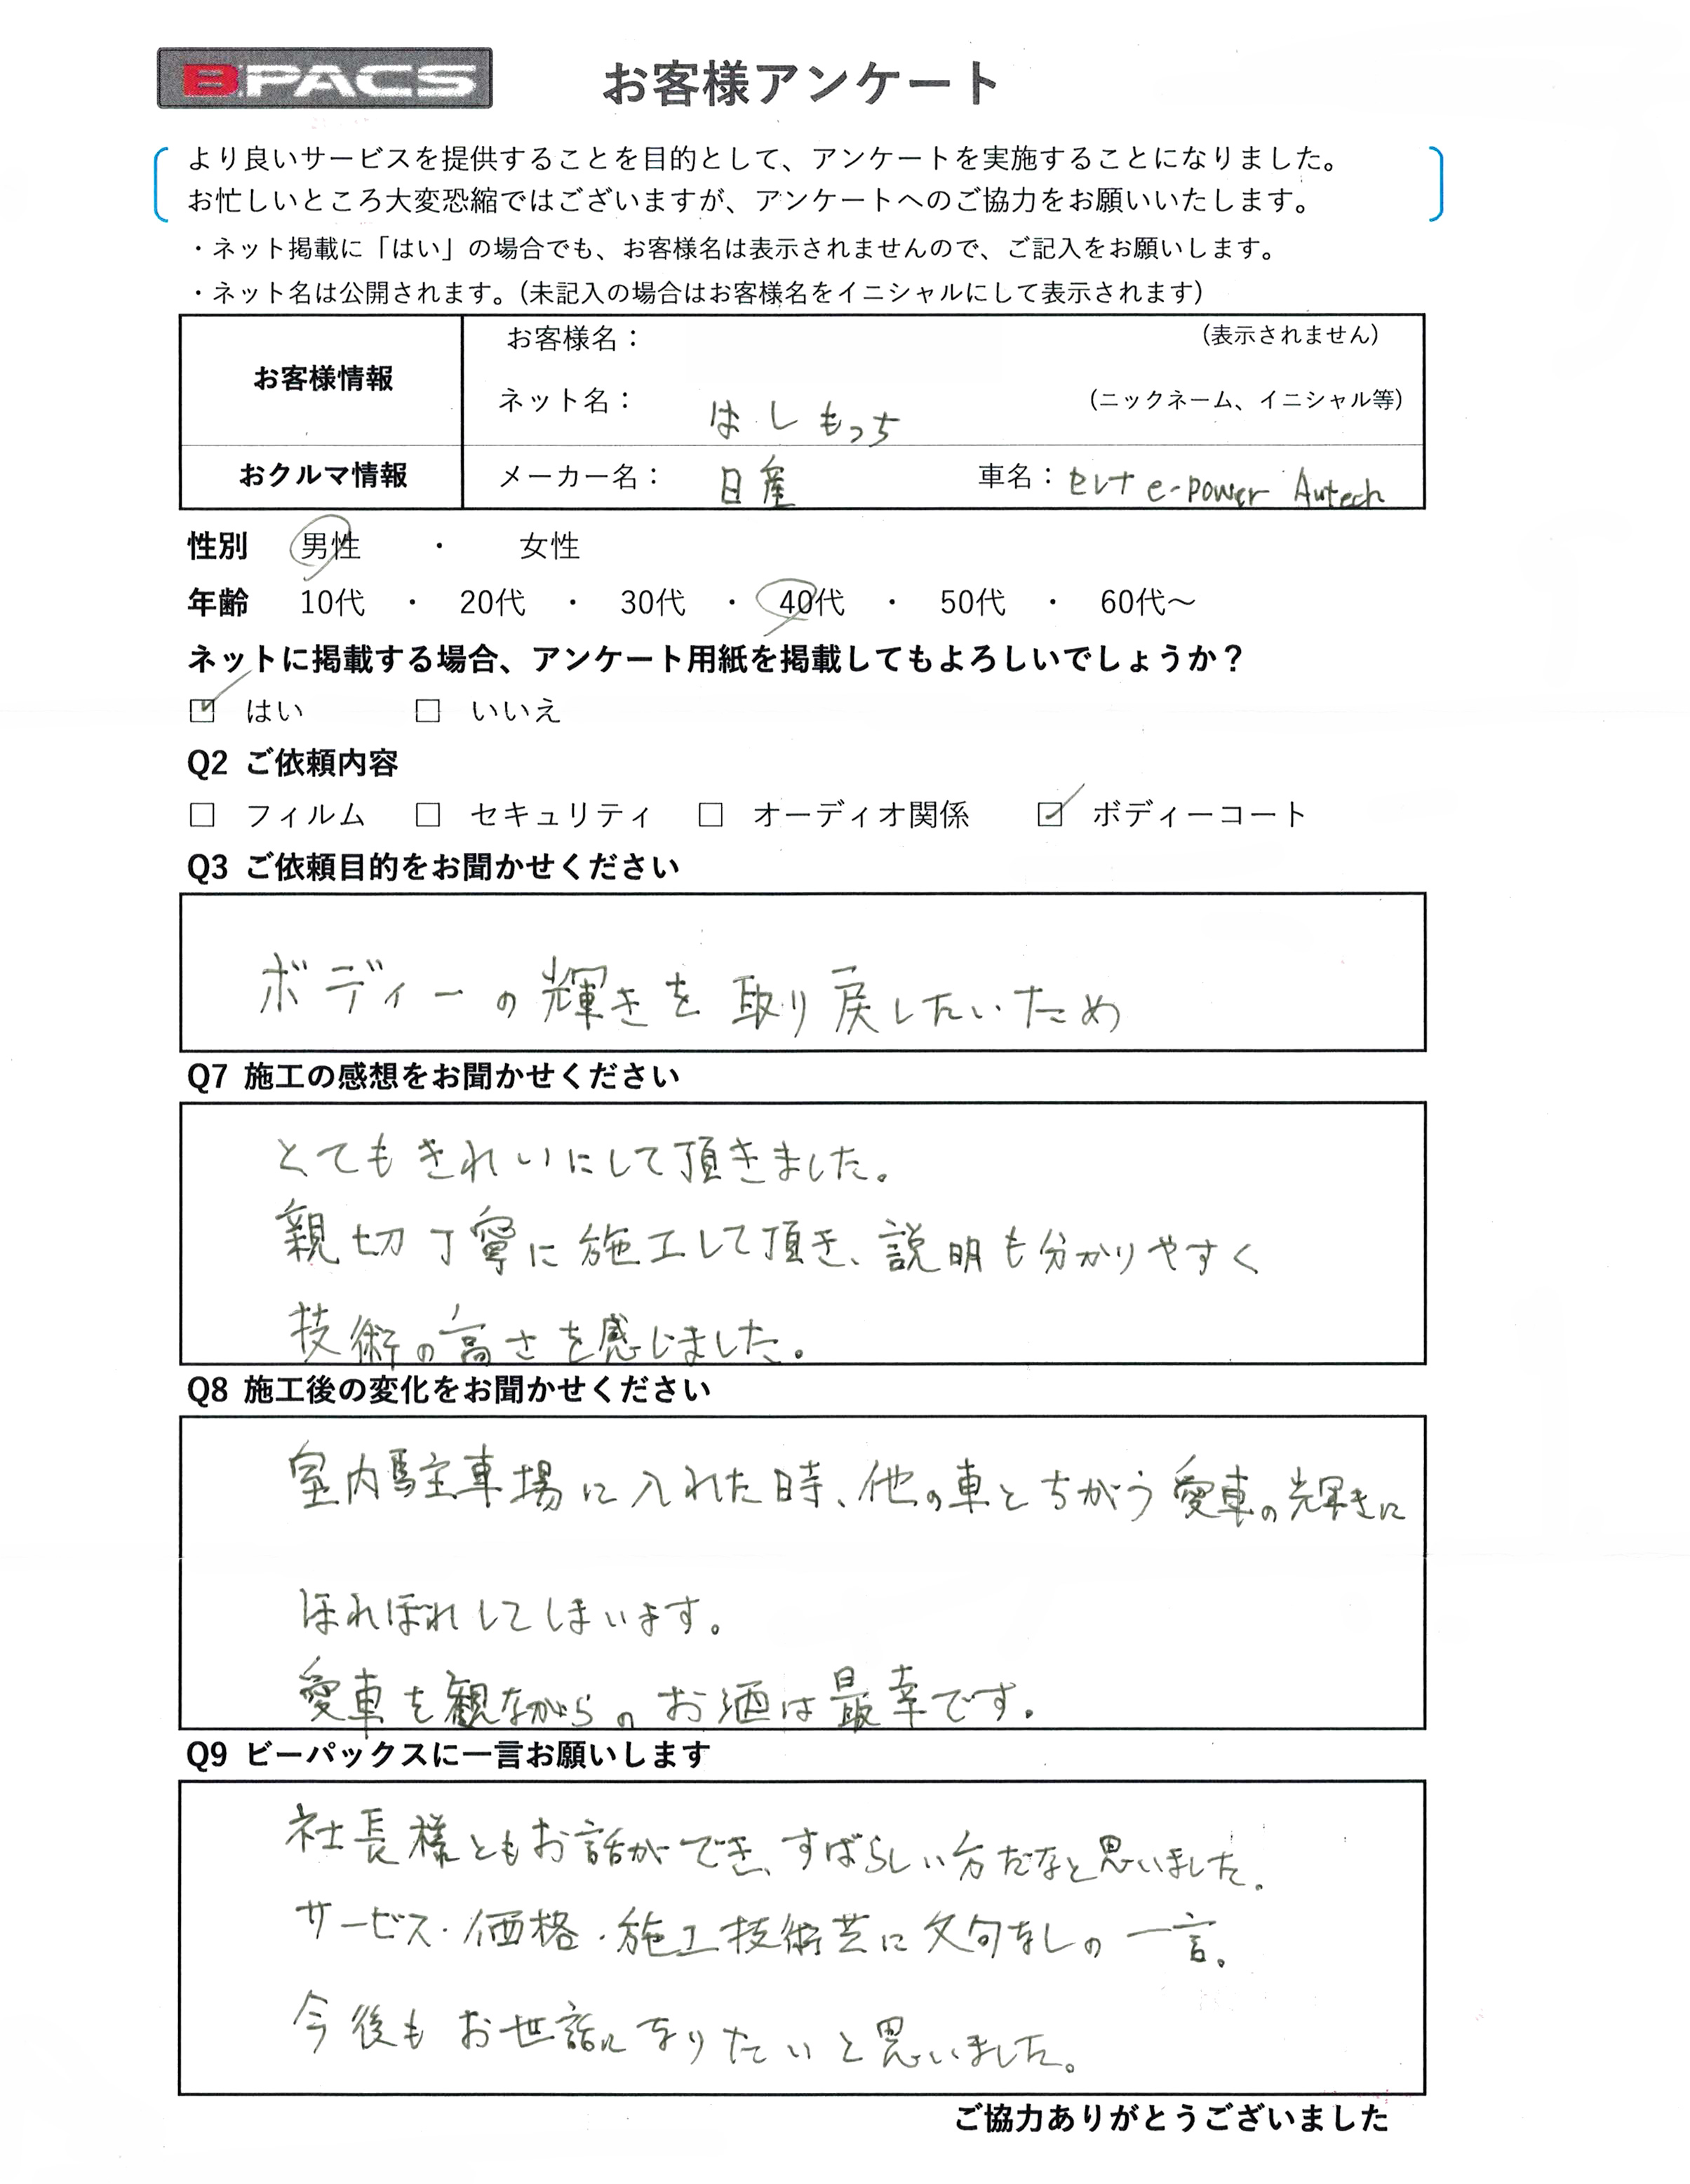 BPACS お客様アンケート
より良いサービスを提供することを目的として、アンケートを実施することになりました。
お忙しいところ大変恐縮ではございますが、アンケートへのご協力をお願いいたします。
・ネット掲載に「はい」の場合でも、お客様名は表示されませんので、ご記入をお願いします。
・ネット名は公開されます。(未記入の場合はお客様名をイニシャルにして表示されます)
お客様情報
お客様名： (表示されません)
ネット名： はしもっち (ニックネーム、イニシャル等)
おクルマ情報 メーカー名： 日産 車名： セレナ e-power Autech
性別 男性 ・ 女性
年齢 10代 ・ 20代 ・ 30代 ・ 40代 ・ 50代 ・ 60代～
ネットに掲載する場合、アンケート用紙を掲載してもよろしいでしょうか？
☑ はい □ いいえ
Q2 ご依頼内容
□ フィルム □ セキュリティ □ オーディオ関係 ☑ ボディーコート
Q3 ご依頼目的をお聞かせください
ボディーの輝きを取り戻したいため
Q7 施工の感想をお聞かせください
とてもきれいにして頂きました。
親切丁寧に施工して頂き、説明も分かりやすく
技術の高さを感じました。
Q8 施工後の変化をお聞かせください
室内駐車場に入れた時、他の車とちがう愛車の輝きに
ほれぼれしてしまいます。
愛車を観ながらのお酒は最幸です。
Q9 ビーパックスに一言お願いします
社長様ともお話ができ、すばらしい方だなと思いました。
サービス・価格・施工技術共に文句なしの一言。
今後もお世話になりたいと思いました。
ご協力ありがとうございました